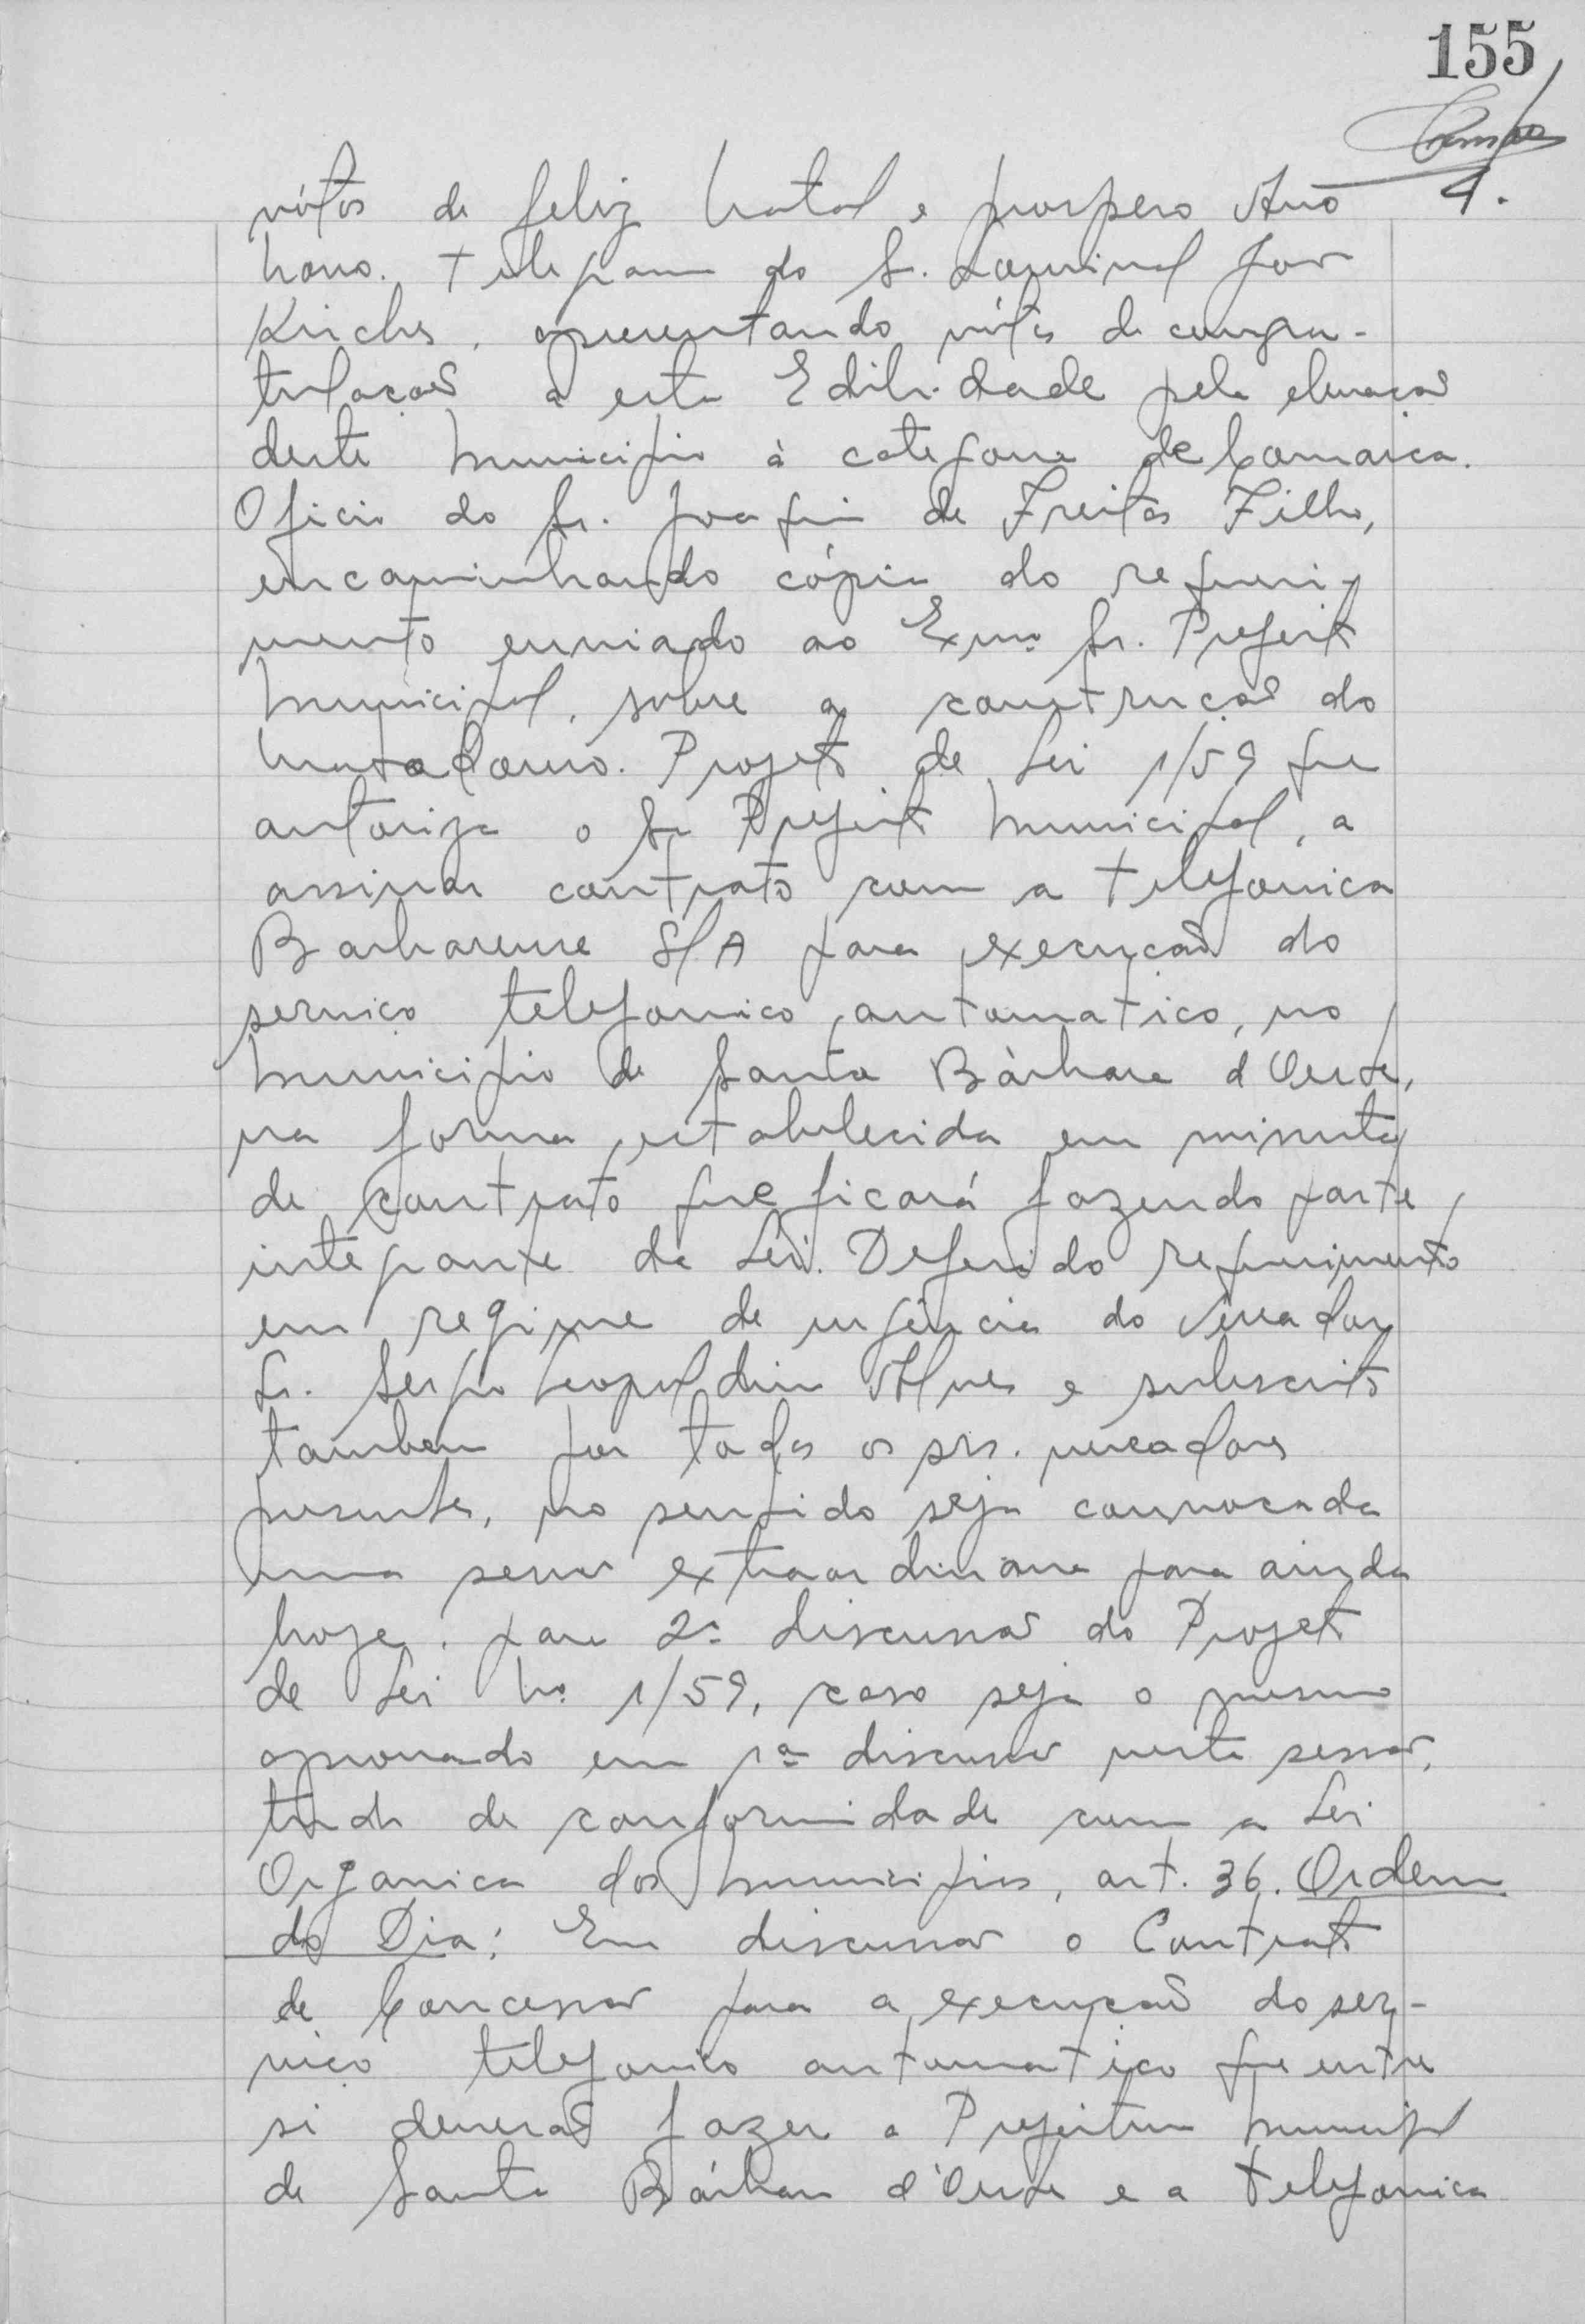 155
4.
vótos de feliz Natal e prospero Ano
Novo. Telegrama do Sr. Lourival Jor
Kirches, apresentando vótos de congra-
tulações a esta Edilidade pela elevação
deste Municipio à categoria de Comarca.
Oficio do Sr. Joaquim de Freitas Filho,
encaminhando cópia do requeri-
mento enviado ao Exmo. Sr. Prefeito
Municipal, sobre a construção do
Matadouro. Projeto de Lei 1/59 que
autoriza o Sr. Prefeito Municipal, a
assinar contrato com a Telefonica
Barbarense S/A para execução do
serviço telefonico automatico, no
Municipio de Santa Bàrbara d'Oeste,
na forma estabelecida em minuta
de contrato que ficará fazendo parte
integrante da Lei. Deferido requerimento
em regime de urgência do Vereador
Sr. Sergio Leopoldino Alves e subscrito
tambem por todos os srs. vereadores
presentes, no sentido seja convocada
uma sessão extraordinaria para ainda
hoje, para 2ª discussão do Projeto
de Lei No. 1/59, caso seja o mesmo
aprovado em 1ª discussão nesta sessão,
tudo de conformidade com a Lei
Organica dos Municipios, art. 36. Ordem
do Dia: Em discussão o Contrato
de Concessão para a execução do ser-
viço telefonico automatico que entre
si deverão fazer a Prefeitura Municipal
de Santa Bárbara d'Oeste e a Telefonica